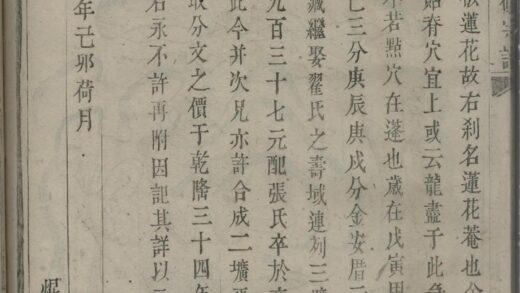 似蓮花故右刹名蓮花菴也
貽脊穴宜上或云龍盡于此
不若點穴在蓬也歲在戊寅
巳三分庚辰庚戌分金安厝
藏繼娶翟氏之壽域連列三
九百三十七元配張氏卒於
此今并次兄亦許合成二壙
取分文之價于乾隆三十四年
若永不許再附因記其詳以
年己卯荷月